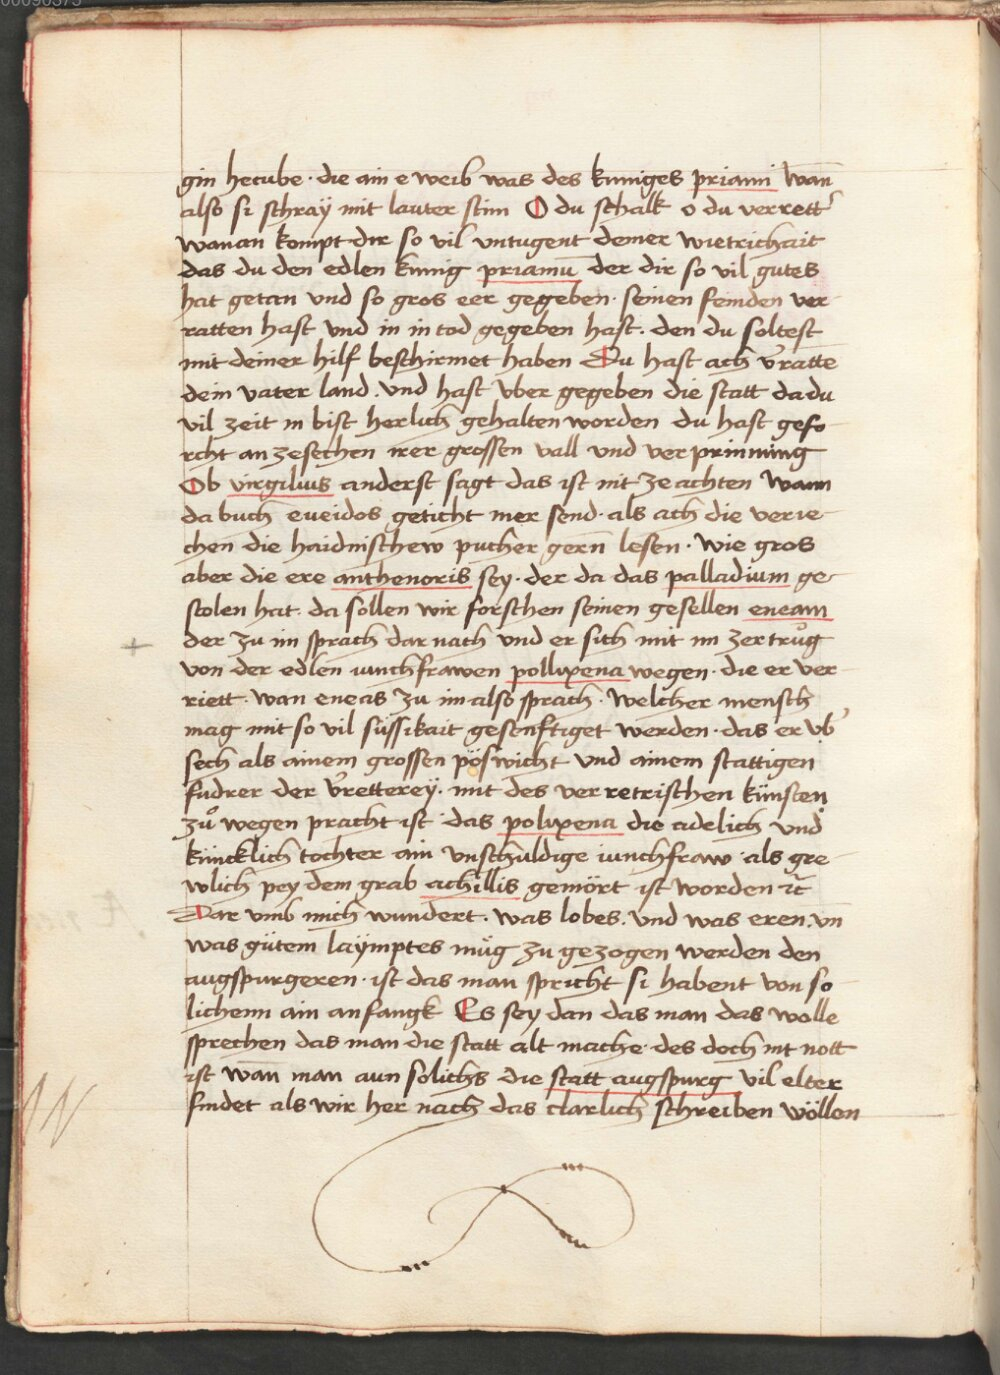 00090375
gin hecube · die ain e weib was des kuniges priami wan̄
also si schraÿ mit lauter stim O du schalk o du verrett͛
wanan kompt dir so vil vntugent deiner wietrichait
das du den edlen kunig priamū der dir so vil gutes
hat getan vnd so gros eer gegeben · seinen feinden ver-
ratten hast vnd in in tod gegeben hast · den du soltest
mit deiner hilf beschirmet haben Du hast ach v͛ratte
dein vater land . vnd hast vber gegeben die statt da du
vil zeit in bist herlich gehalten worden du hast gefo-
rcht an zesechen irer grossen vall vnd verprinning
Ob virgilius anderst sagt das ist nit ze achten wann
da buch eneidos geticht mer send · als ach die verie-
chen die haidnischew pucher gern lesen · wie gros
aber die ere anthenoris sey · der da das palladium ge-
stolen hat · da sollen wir forschen seinen gesellen eneam
der zu im sprach dar nach vnd er sich mit im zertrůg
von der edlen iunchfrawen polixena wegen · die er ver-
riett · wan eneas zu im also sprach · welcher mensch
mag mit so vil süssikait gesenftiget werden · das er vb͛
sech als ainem grossen pöswicht vnd ainem stattigen
fudrer der v͛retterey · mit des verretrischen künsten
zů wegen pracht ist · das polixena die adelich vnd
küncklich tochter ain vnschuldige iunchfraw · als gre-
wlich pey dem grab achillis gemört ist worden ꝛc̄
Dar vmb mich wundert · was lobes . vnd was eren . vn̄
was gütem laÿmptes mug zu gezogen werden den
augspurgeren · ist das man spricht si habent von so-
lichenn ain anfangk Es sey dan das man das wolle
sprechen das man die statt alt mache · des doch nit nott
ist wan̄ man aun solichs die statt augspurg vil elter
findet als wir her nach das clarlich schreiben wöllen